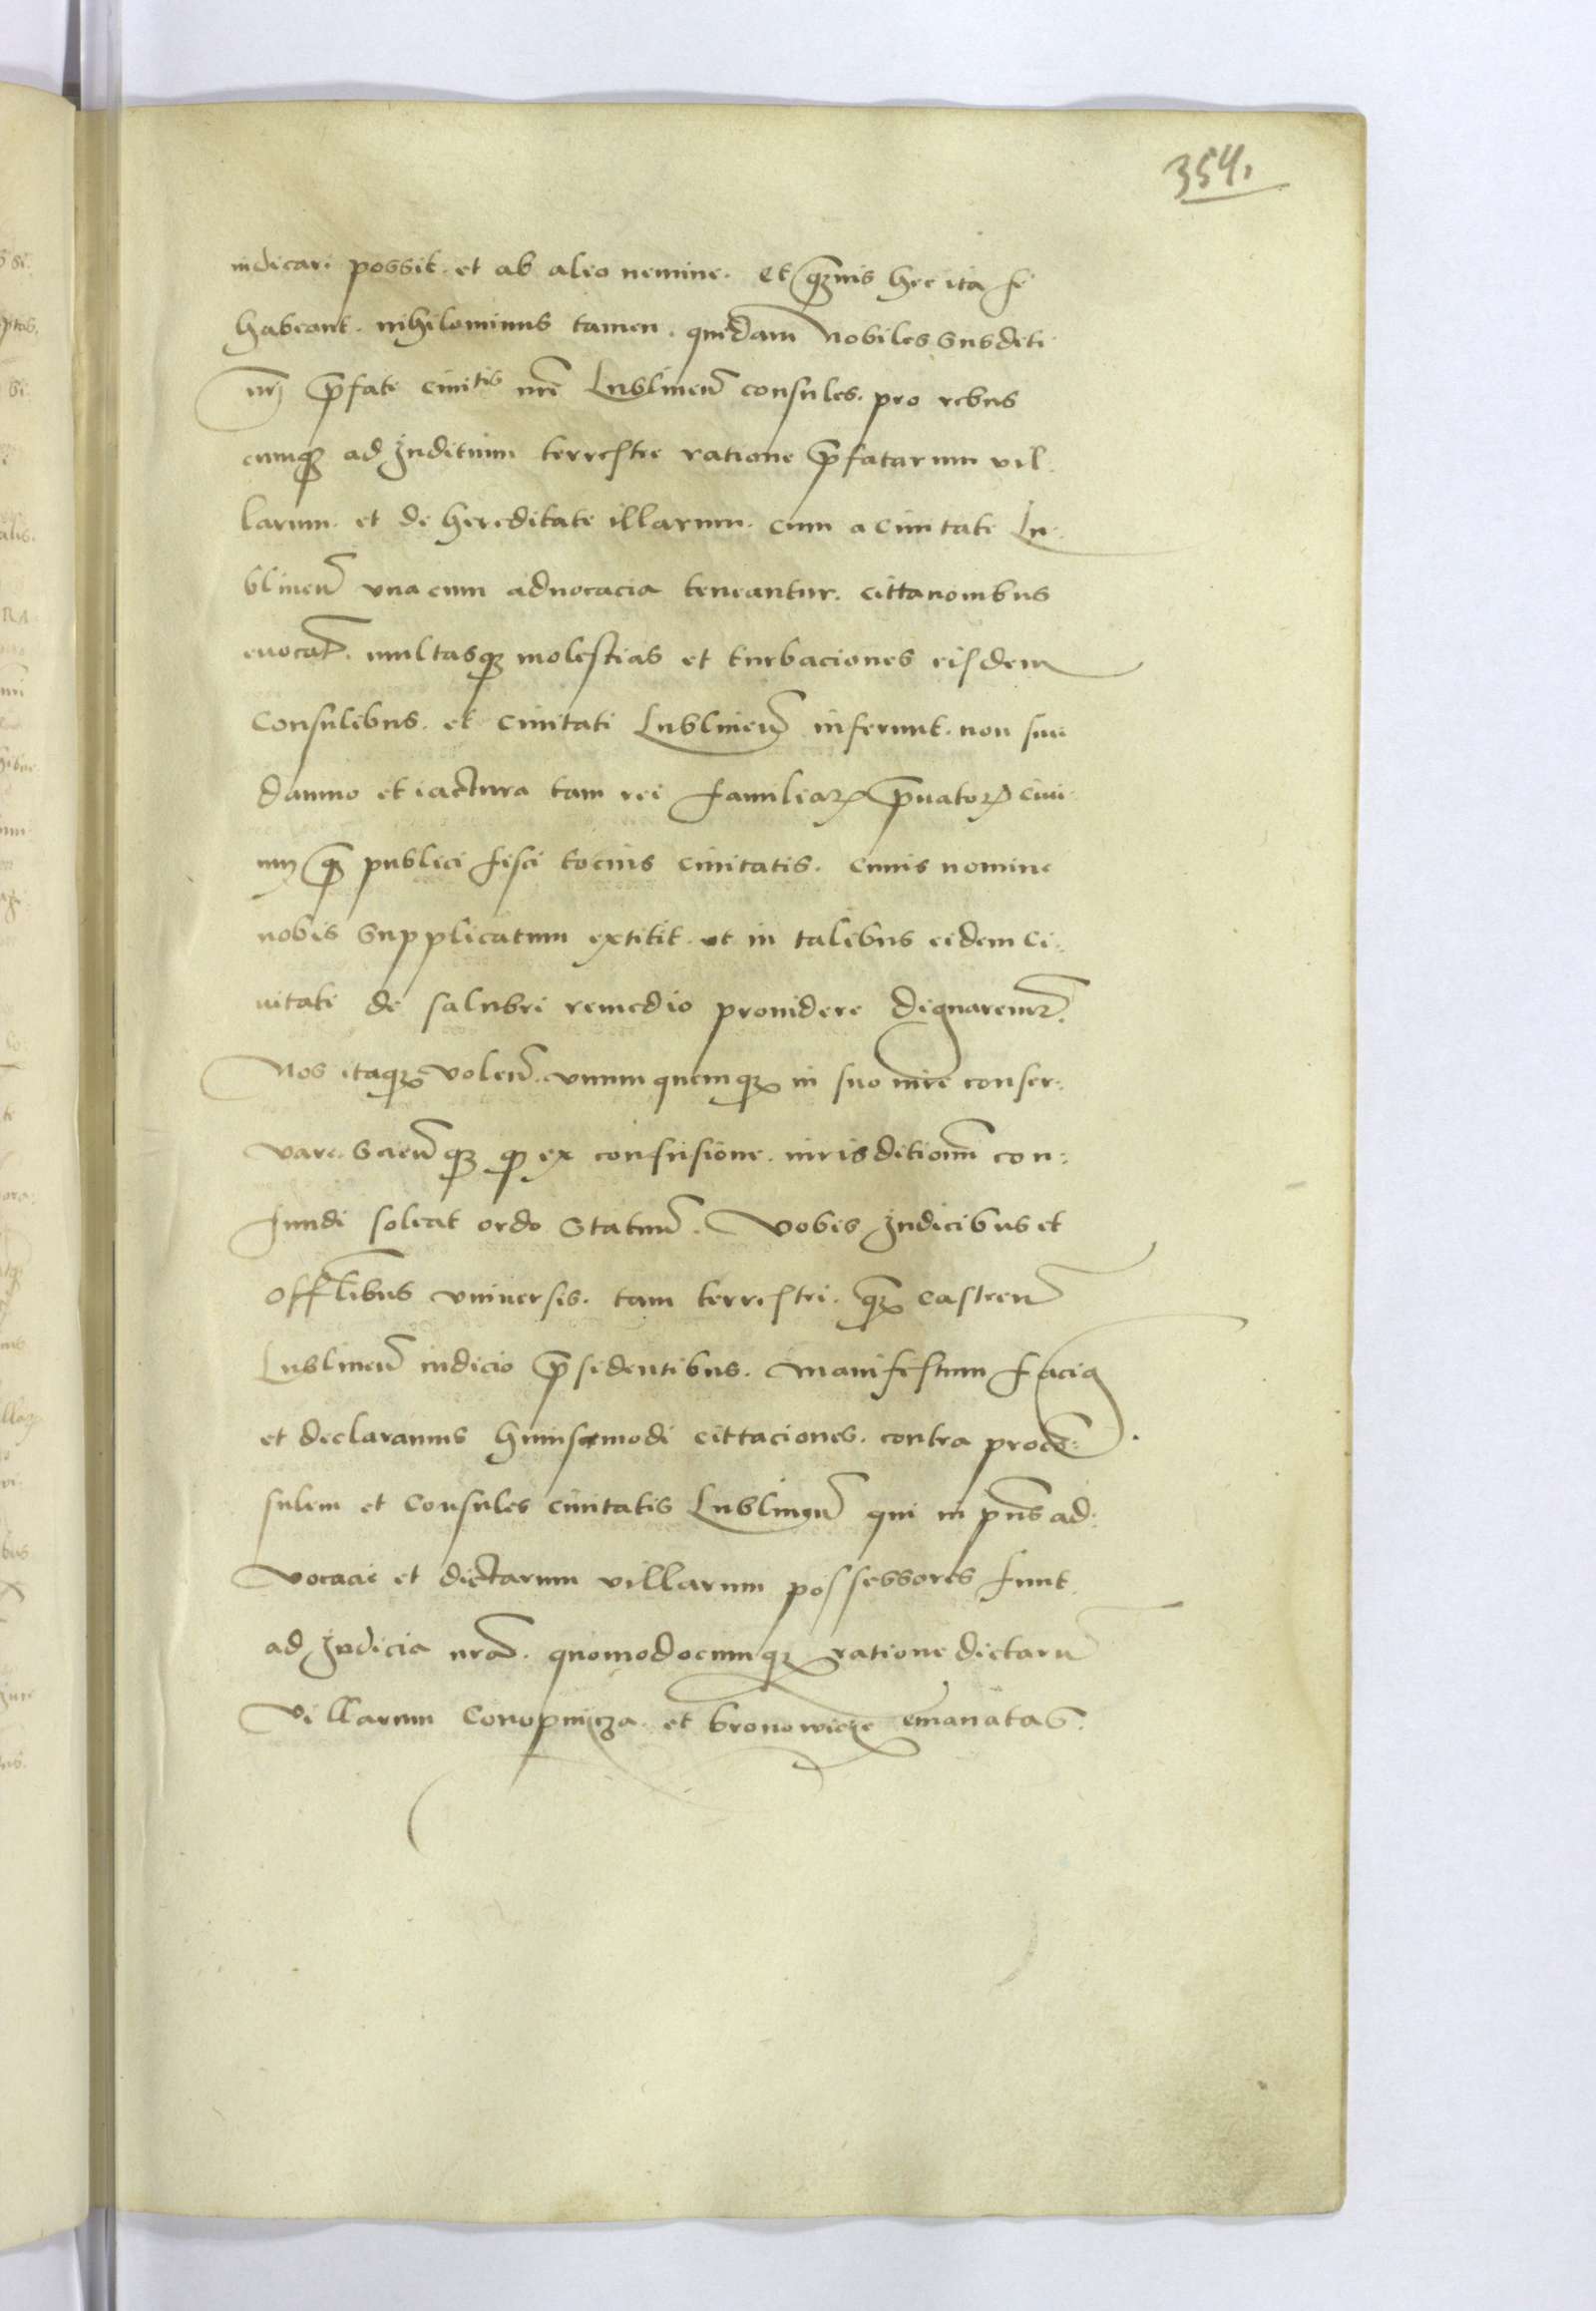 354.
iudicari possit. et ab alio nemine. Et q̃uis hec ita se
habeant. nihilominus tamen. quidam nobiles subditi
nrj p̃fate ciuitis nr̃e Lublineñ consules. pro rebus
cumqꝫ ad Juditium terrestre ratione p̃fatarum vil
larum. et de hereditate illarum. cum a ciuitate Lu
blineñ vna cum aduocacia teneantur. cittationibus
euocat̃. multasqꝫ molestias et turbaciones eisdem
Consulibus. et ciuitati Lublineñ inferunt. non sine
damno et iactura tam rei familiaꝝ p̃uatoꝝ ciui
um q̃ publici fisci tocius ciuitatis. cuius nomine
nobis supplicatum extitit. ut in talibus eidem Ci:
uitati de salubri remedio prouidere dignaremur.
Nos itaqꝫ voleñ. vnumquemqꝫ in suo iure conser:
vare. Scieñqꝫ ꝙ ex confusione. iurisditionũ con:
fundi soleat ordo statuũ. Vobis Judicibus et
offl̃ibus vniuersis. tam terrestri. q̃ castreñ
Lublineñ iudicio p̃sidentibus. manifestum facim
et declaramus huiuscemodi cittaciones. contra procõ:
sulem et Consules ciuitatis Lublineñ qui in pñs ad:
vocacie et dictarum villarum possessores sunt
ad Judicia nrã. quomodocumqꝫ ratione dictarũ
Villarum Conopnicza et bronowicze emanatas.